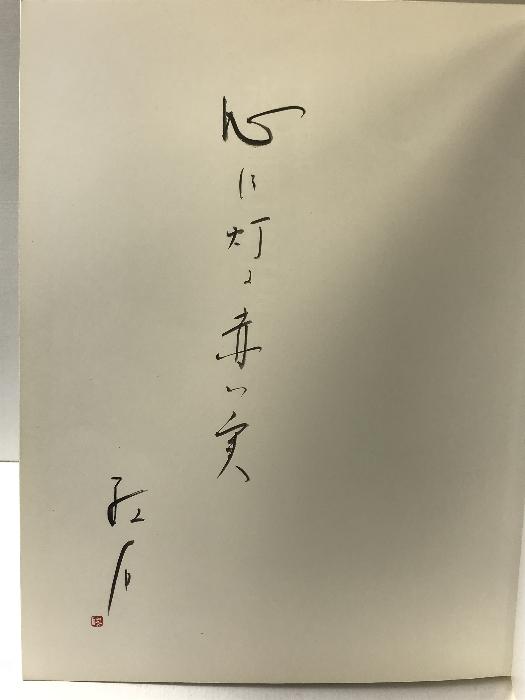 心に灯る赤い実